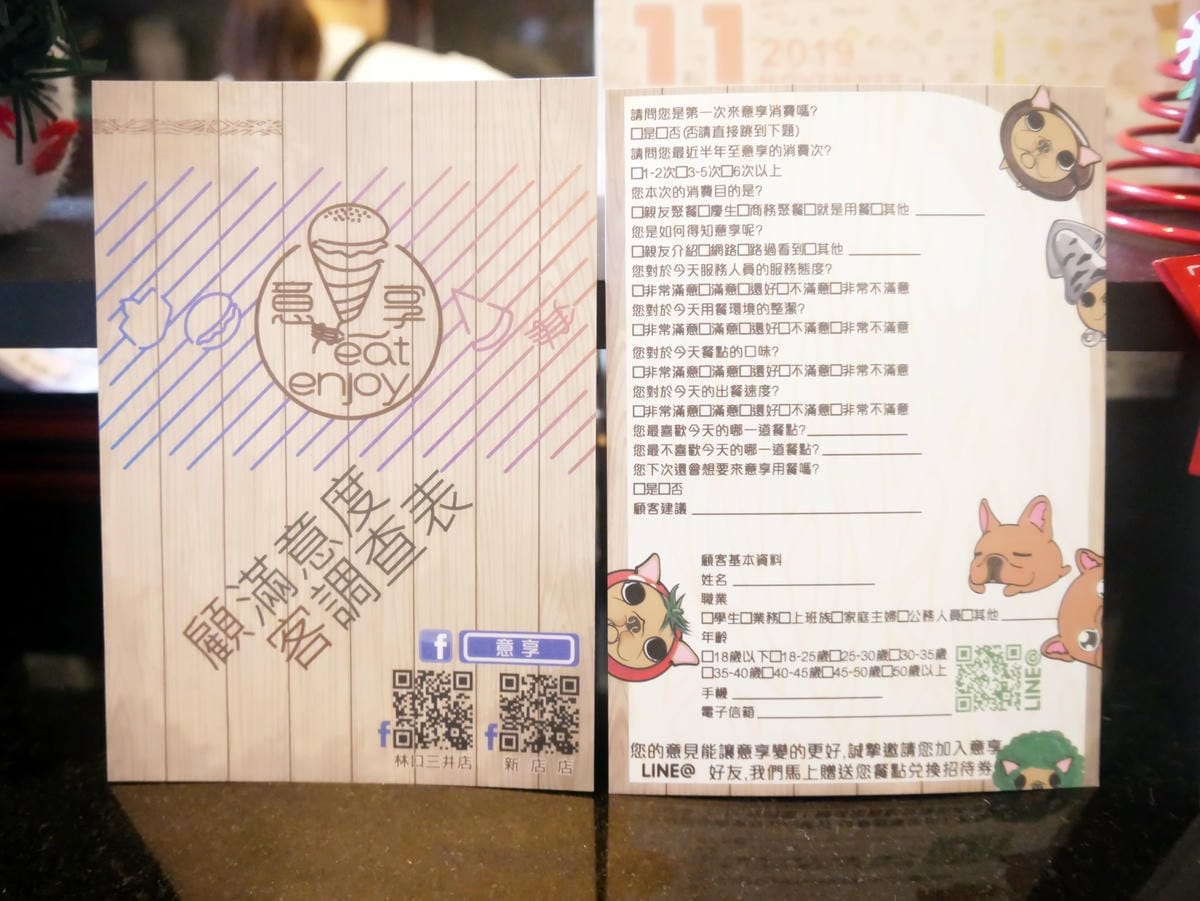 11
2019
NOVEMBER
意享
eat
enjoy
顧滿意度
客調查表
f 意享
f
f
林口三井店
新店店
請問您是第一次來意享消費嗎?
□是□否(否請直接跳到下題)
請問您最近半年至意享的消費次?
□1-2次□3-5次□6次以上
您本次的消費目的是?
□親友聚餐□慶生□商務聚餐□就是用餐□其他
您是如何得知意享呢?
□親友介紹□網路□路過看到□其他
您對於今天服務人員的服務態度?
□非常滿意□滿意□還好□不滿意□非常不滿意
您對於今天用餐環境的整潔?
□非常滿意□滿意□還好□不滿意□非常不滿意
您對於今天餐點的口味?
□非常滿意□滿意□還好□不滿意□非常不滿意
您對於今天的出餐速度?
□非常滿意□滿意□還好□不滿意□非常不滿意
您最喜歡今天的哪一道餐點?
您最不喜歡今天的哪一道餐點?
您下次還會想要來意享用餐嗎?
□是□否
顧客建議
顧客基本資料
姓名
職業
□學生□業務□上班族□家庭主婦□公務人員□其他
年齡
□18歲以下□18-25歲□25-30歲□30-35歲
□35-40歲□40-45歲□45-50歲□50歲以上
手機
電子信箱
LINE@
您的意見能讓意享變的更好,誠摯邀請您加入意享
LINE@ 好友,我們馬上贈送您餐點兌換招待券